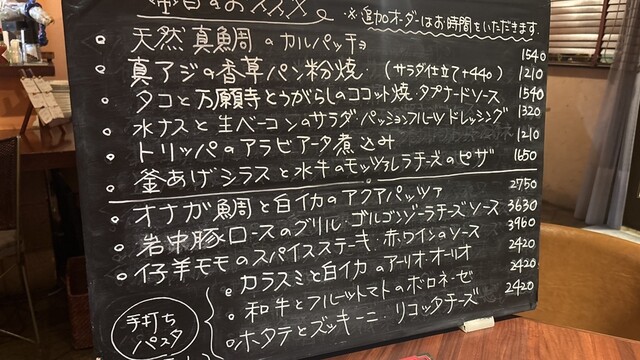 本日のおススメ
※追加オーダーはお時間をいただきます
天然真鯛のカルパッチョ 1540
真アジの香草パン粉焼・(サラダ仕立て+440) 1210
タコと万願寺とうがらしのココット焼・タプナードソース 1540
水ナスと生ベーコンのサラダ・パッションフルーツドレッシング 1320
トリッパのアラビアータ煮込み 1210
釜あげシラスと水牛のモッツァレラチーズのピザ 1650
オナガ鯛と白イカのアクアパッツァ 2750
岩中豚ロースのグリル・ゴルゴンゾーラチーズソース 3630
仔羊モモのスパイスステーキ・赤ワインのソース 3960
手打ちパスタ
カラスミと白イカのアーリオ・オーリオ 2420
和牛とフルーツトマトのボロネーゼ 2420
ホタテとズッキーニ・リコッタチーズ 2420